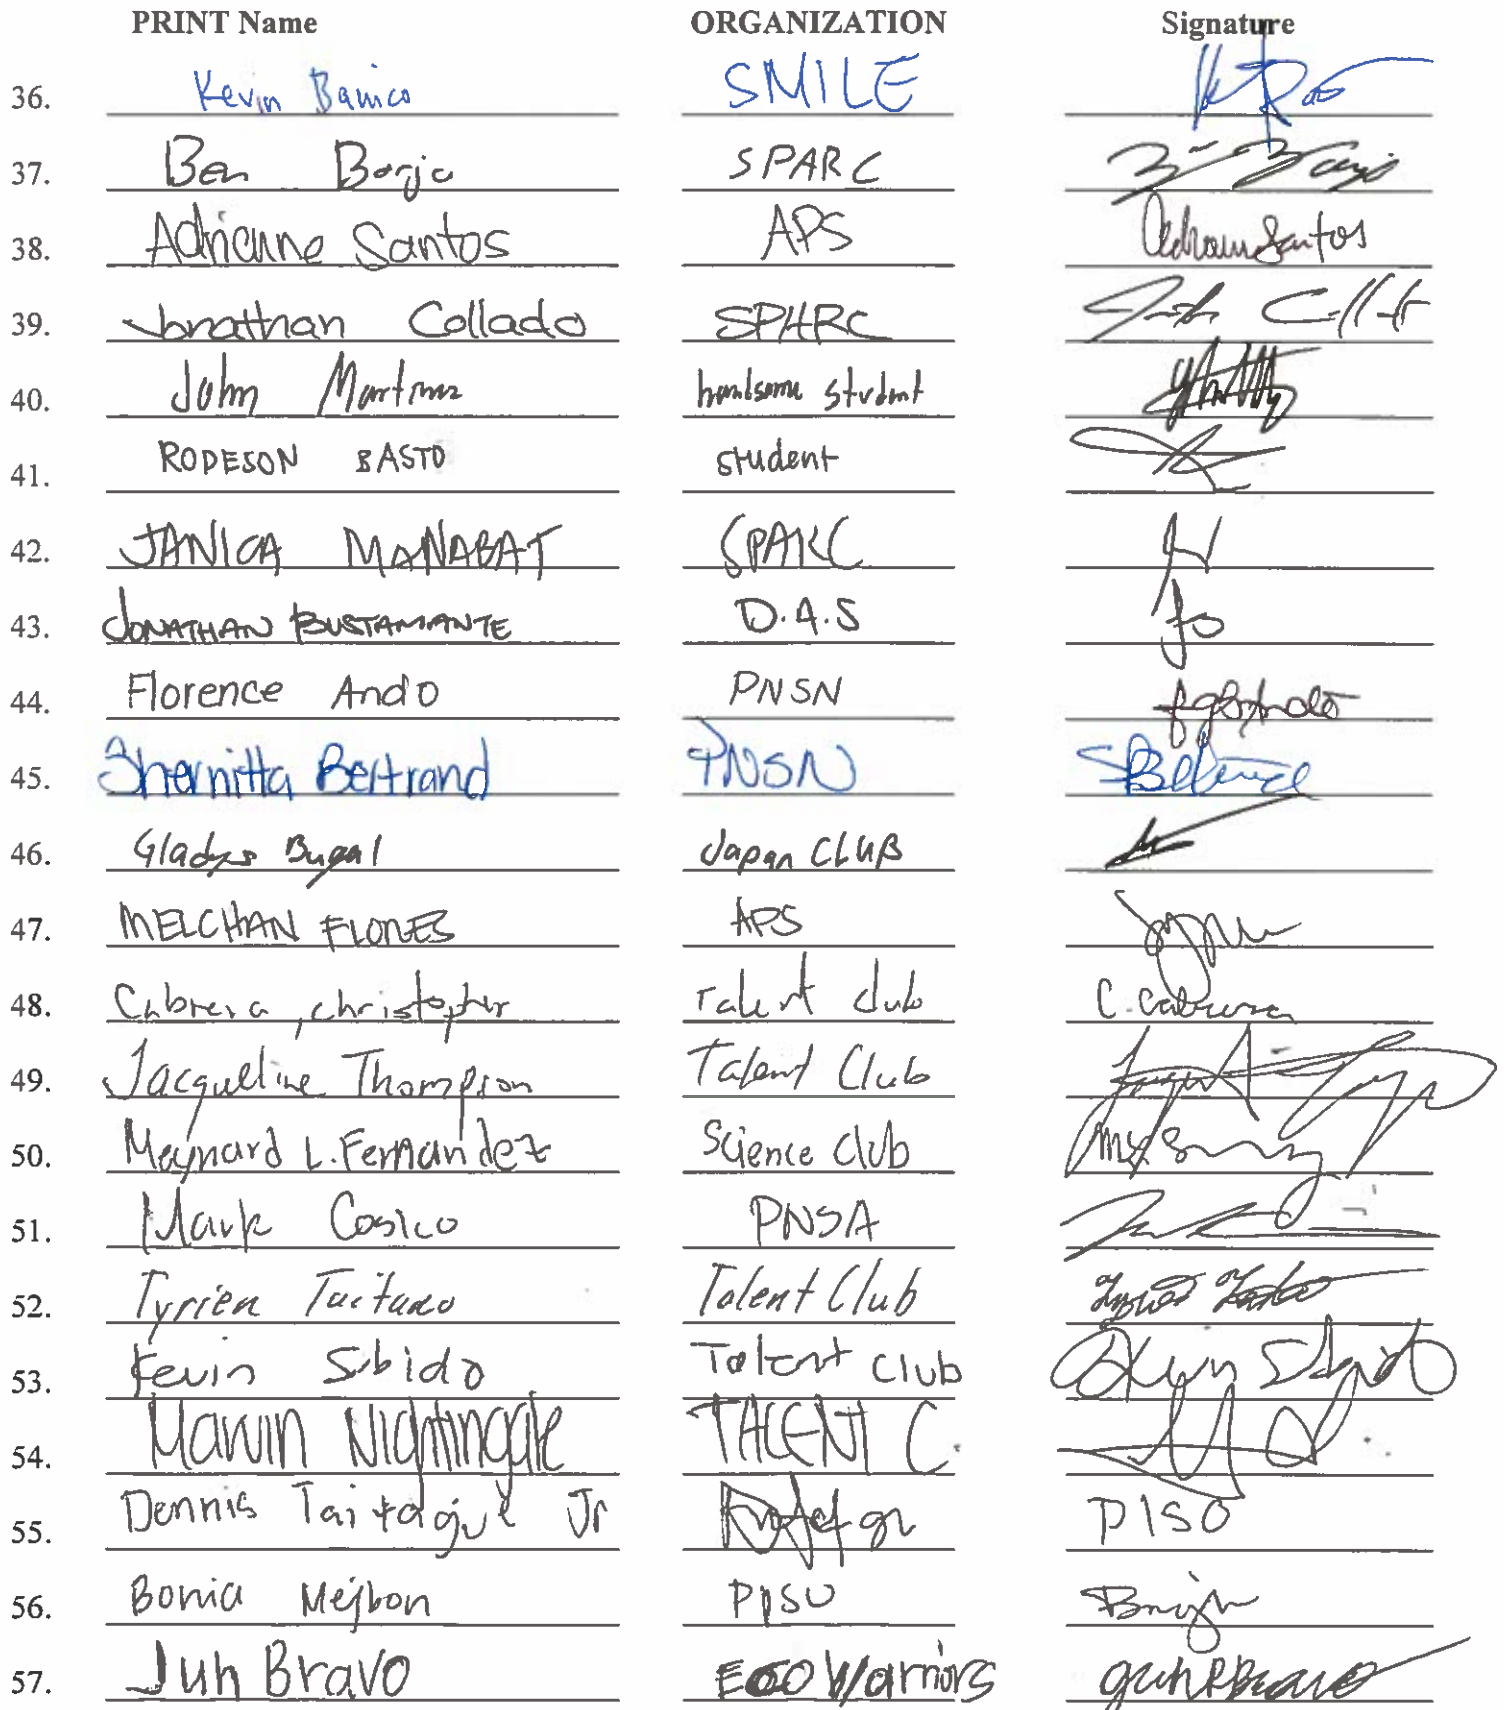 PRINT Name ORGANIZATION Signature
36. Kevin SMILE
37. Ben Borja SPARC
38. Adrianne Santos APS Santos
39. Jonathan Collado SPARC
40. John Martinez handsome student
41. RODESON BASTO student
42. JANICA MANABAT SPARC
43. JONATHAN BUSTAMANTE D.A.S
44. Florence Ando PNSN
45. Shernitta Bertrand PNSN
46. Gladys Bugal Japan CLUB
47. MELCHAN FLORES APS
48. Cabrera, christopher Talent club C. Cabrera
49. Jacqueline Thompson Talent Club
50. Maynard L. Fernandez Science Club
51. Mark Cosico PNSA
52. Tyrien Taitano Talent Club
53. Kevin Subido Talent Club
54. Marvin Nightingale TALENT C.
55. Dennis Taitague Jr PISO
56. Bonia Mejbon PISO
57. Juh Bravo ECO Warriors